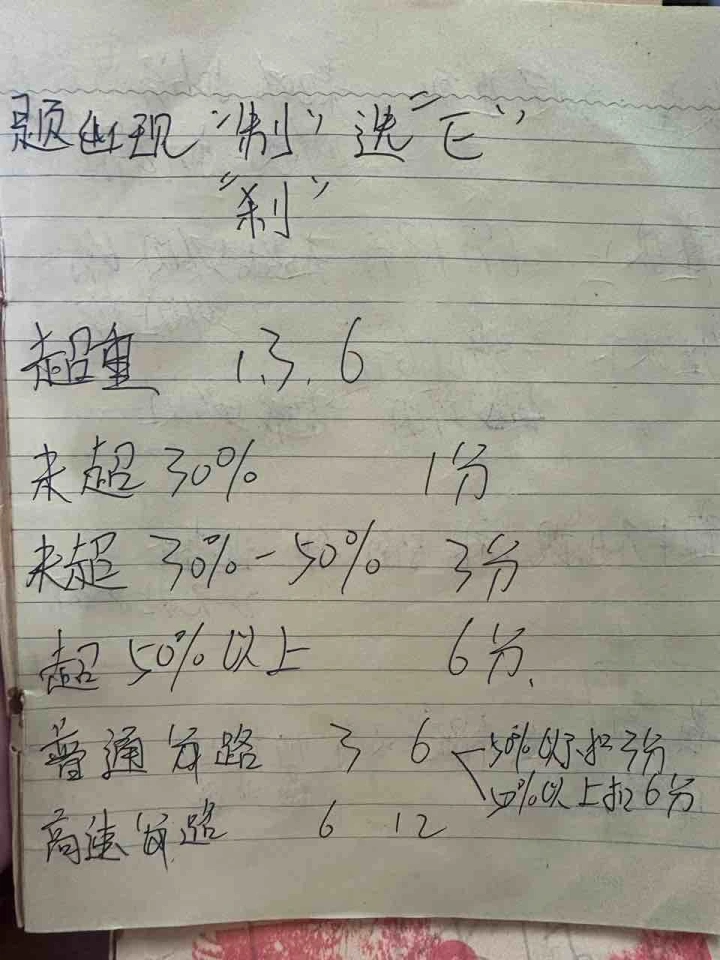 题出现“制”选“它”
“刹”
超重 1、3、6
未超30% 1分
未超30%-50% 3分
超50%以上 6分、
普通公路 3 6 50%以下扣3分
50%以上扣6分
高速公路 6 12